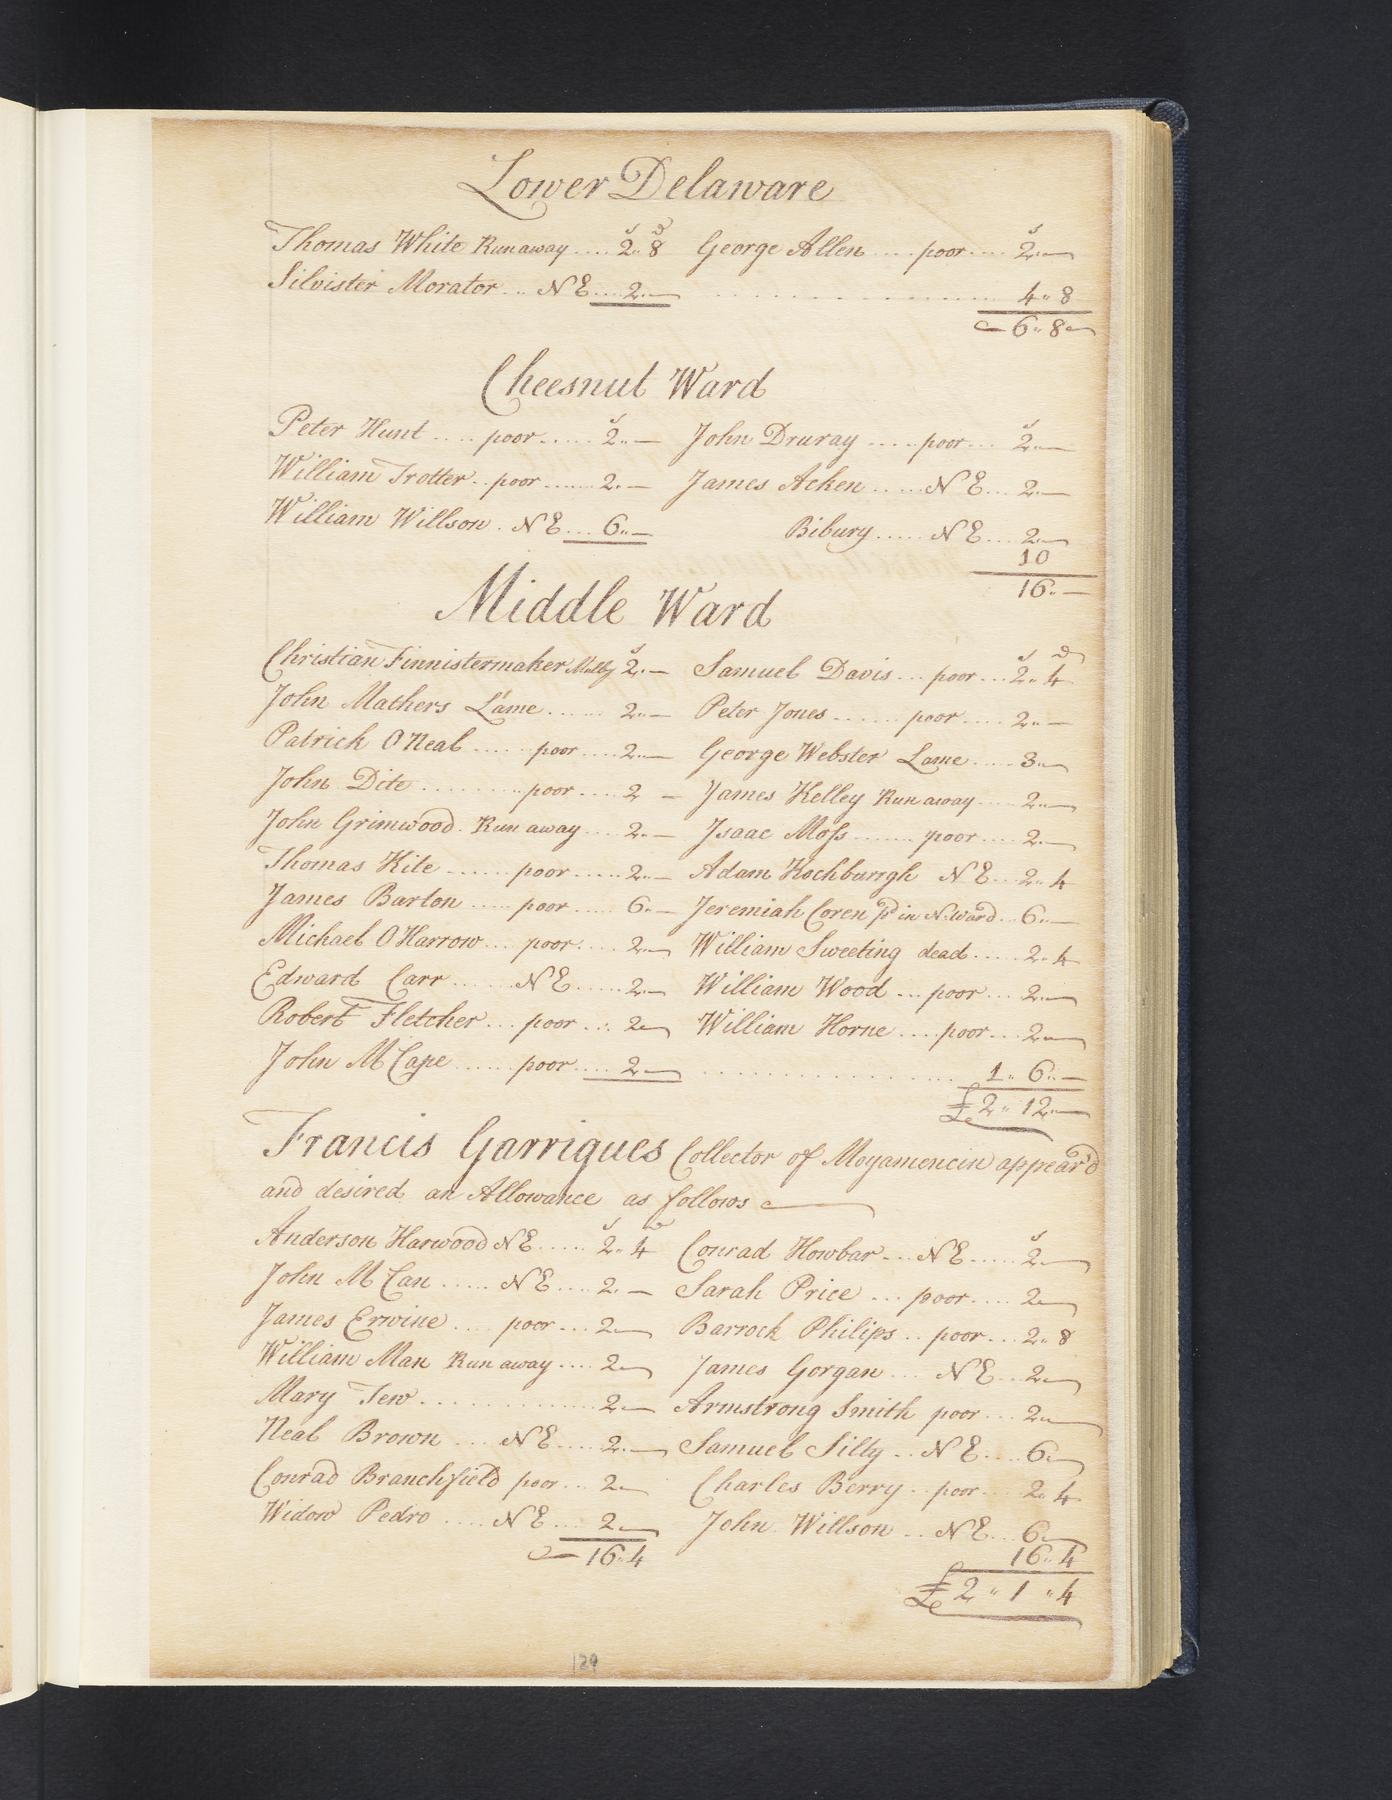 Lower Delaware
s D s
Thomas White Runaway .... 2.. 8 George Allen .... poor .... 2..—
Silvister Morator ... N E ... 2..— .................... 4.. 8
6.. 8
Cheesnut Ward
s s
Peter Hunt .... poor ..... 2.. — John Druray ..... poor ... 2..—
William Trotter .. poor ....... 2. — James Acken ..... N E ... 2..—
William Willson . N E ... 6..— Bibury ..... N E ... 2..—
10
16.. —
Middle Ward
s s D
Christian Finnistermaker 2..— Samuel Davis ... poor ... 2.. 4
John Mathers Lame ...... 2..— Peter Jones ...... poor .... 2.. —
Patrick O Neal ...... poor .... 2..— George Webster Lame ..... 3..—
John Dite ......... poor .... 2 — James Kelley Run away .... 2..—
John Grimwood . Run away .... 2..— Isaac Moss ....... poor .... 2..—
Thomas Kite ...... poor ..... 2..— Adam Hochburrgh N E ... 2.. 4
James Barton ..... poor ..... 6.. — Jeremiah Coren pd in N. Ward .. 6..—
Michael O Harrow ... poor .... 2..— William Sweeting dead ..... 2.. 4
Edward Carr ...... N E ...... 2..— William Wood ... poor ... 2..—
Robert Fletcher ... poor ... 2— William Horne .... poor ... 2..—
John M Cape ...... poor .... 2..— .................... 1.. 6.. —
£ 2.. 12..—
Francis Garrigues Collector of Moyamencin appear'd
and desired an Allowance as follows
s D s
Anderson Harwood N E ..... 2.. 4 Conrad Howbar ... N E ..... 2..—
John M Can ..... N E .... 2. — Sarah Price ... poor .... 2..—
James Erwine .... poor ... 2..— Barrock Philips .. poor ... 2.. 8
William Man Run away .... 2..— James Gorgan ... N E ... 2..—
Mary Tew .............. 2..— Armstrong Smith poor ... 2..—
Neal Brown .... N E .... 2..— Samuel Silly .. N E .... 6..—
Conrad Branchfield poor ... 2..— Charles Berry .. poor .... 2.. 4
Widow Pedro ..... N E .... 2..— John Willson ... N E ... 6..—
— 16.. 4 16.. 4
£ 2 .. 1 .. 4
129